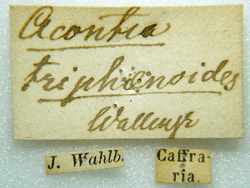 Acontia
triphænoides
Wallengr
J. Wahlb.
Caffra-
ria.